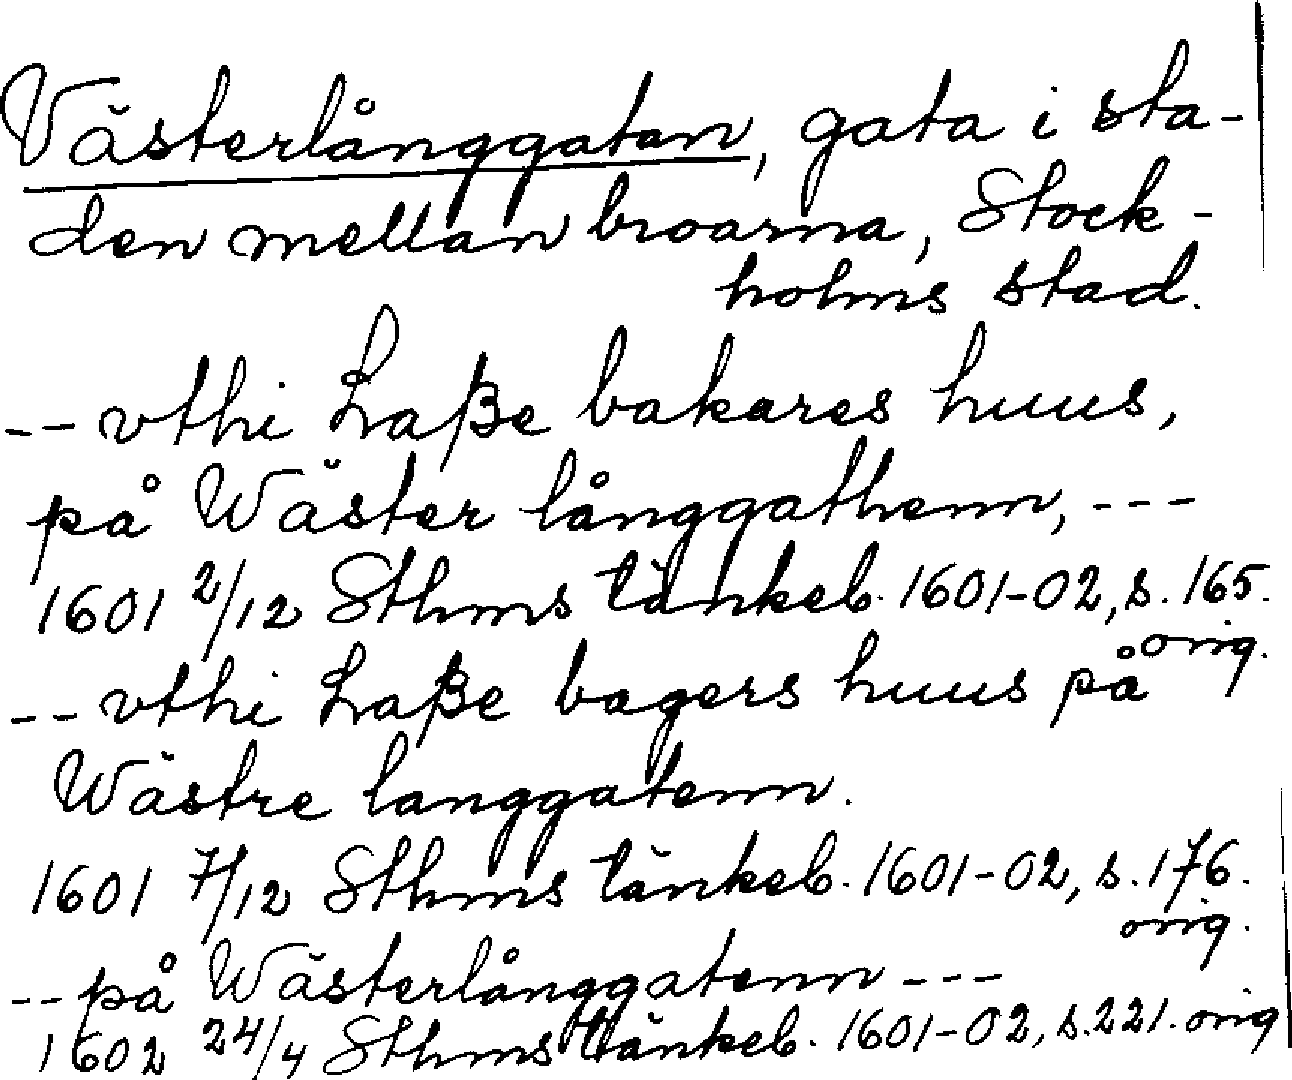 Västerlånggatan, gata i sta-
den mellan broarna, Stock-
holms stad.
-- vthi Laße bakares huus,
på Wäster långgathenn, ---
1601 2/12 Sthms tänkeb. 1601-02, s. 165.
orig.
-- vthi Laße bagers huus på
Wästre langgatenn.
1601 7/12 Sthms tänkeb. 1601-02, s. 176.
orig.
-- på Wästerlånggatenn ---
1602 24/4 Sthms tänkeb. 1601-02, s. 221. orig